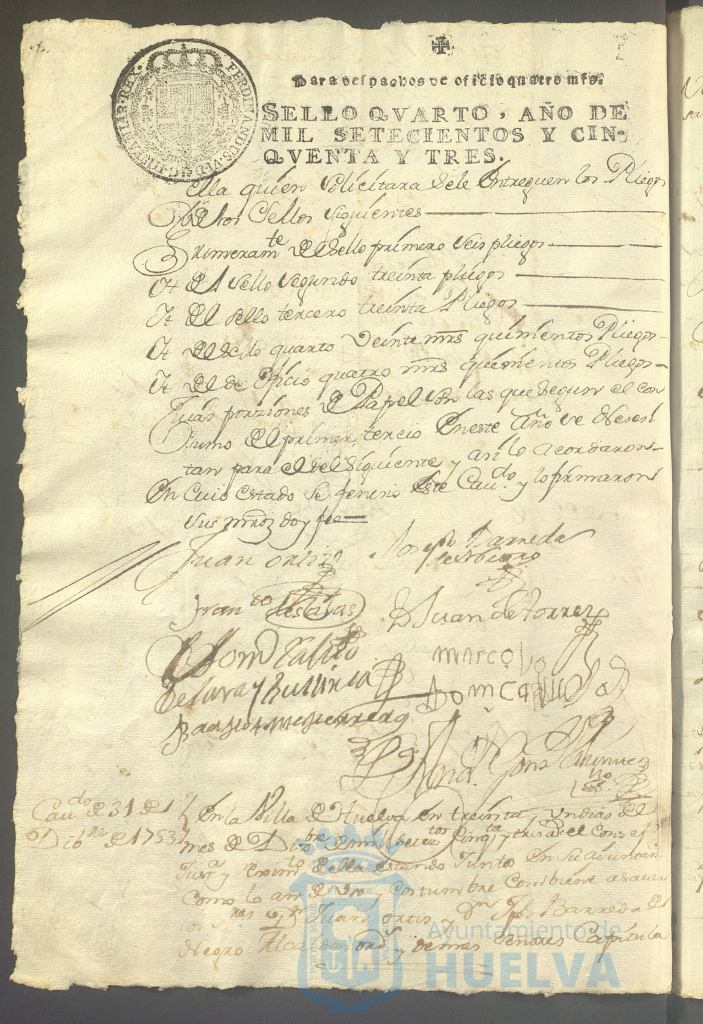 Para despachos de oficio quatro mrs.
SELLO QVARTO, AÑO DE
MIL SETECIENTOS Y CIN-
QVENTA Y TRES.
FERDINANDUS
ella quien solicitara sele entreguen los Pliegos
de los Sellos siguientes
Primeramte del sello primero seis pliegos
Yt del sello segundo treinta pliegos
Yt del sello tercero treinta Pliegos
Yt del sello quarto veinte mrs quinientos Pliegos
Yt del de oficio quatro mrs quinientos Pliegos
Cuias porziones de Papel son las que segun el con
sumo del primer tercio en este Año se nesesi
tan para el del siguiente y asi lo acordaron
en cuio estado se fenecio este Cavdo y lo firmaron
sus mrzds doy fee
Juan ortiz
Joseph Barreda
Franco
D Juan de Torres
marcos
Domingo
Caudo de 31 de
Dibre de 1753
En la Villa de Huelva en treinta y un dias del
mes de Dizbre de mill setezos cinqta y tres a. el Consejo
Justa y rexim.to della estando Junto en su
como lo an de uso, y costumbre combiene a saver
Juan ortiz y Dn Jph Barreda el
Negro Alcaldes ords y demas señores Capitula
Ayuntamiento de
HUELVA